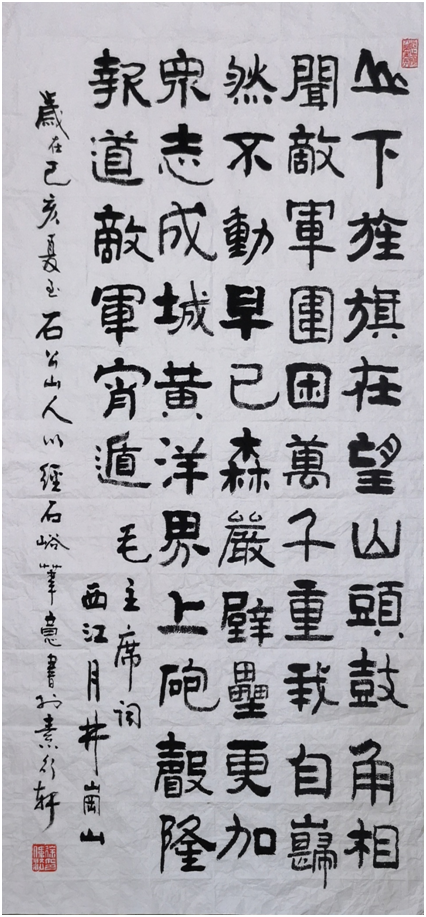 山下旌旗在望山頭鼓角相
聞敵軍圍困萬千重我自巋
然不動早已森嚴壁壘更加
衆志成城黄洋界上砲聲隆
報道敵軍宵遁 毛主席詞
西江月井崗山
歲在己亥夏至石公山人以經石峪筆意書於素行軒